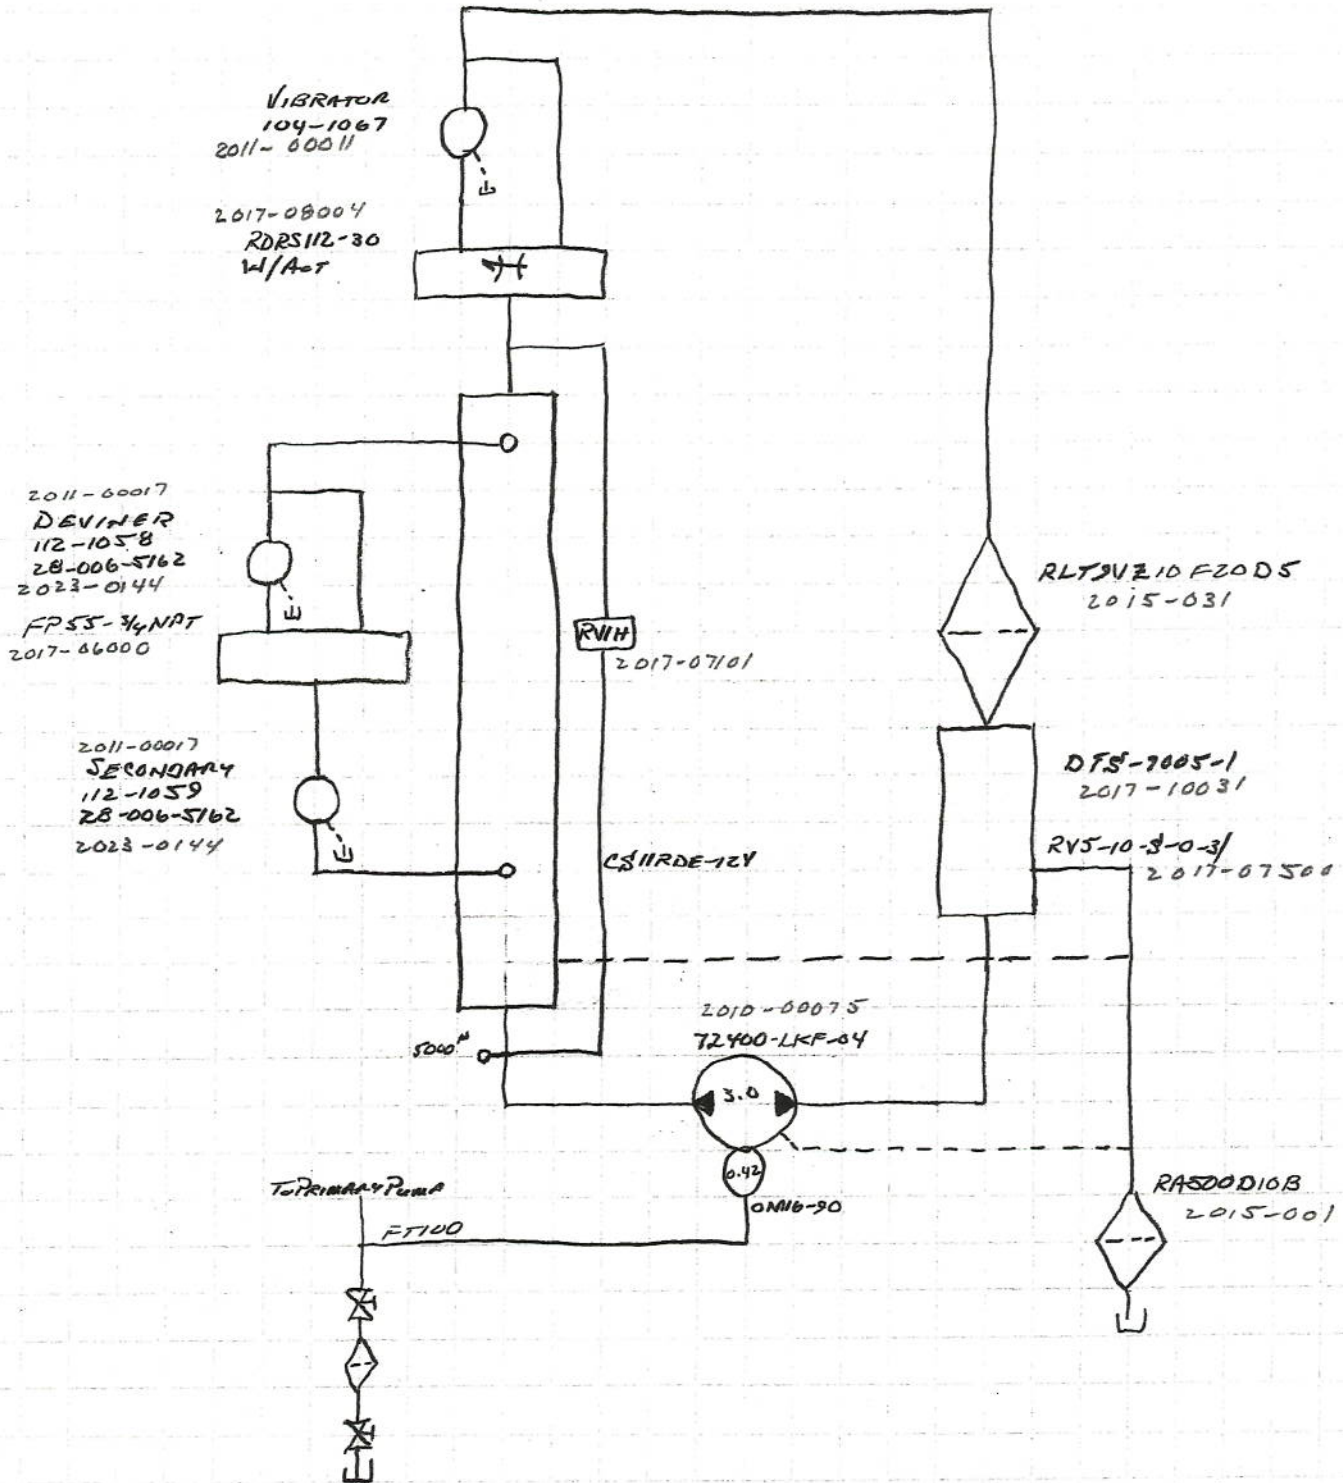 VIBRATOR
104-1067
2011-00011
2017-08004
RDRS112-30
W/ACT
2011-00017
DEVINER
112-1058
28-006-5162
2023-0144
FP55-3/4NPT
2017-06000
RV1H
2017-07101
2011-00017
SECONDARY
112-1059
28-006-5162
2023-0144
CS11RDE-12V
RLT9VZ10F20D5
2015-031
DTS-9005-1
2017-10031
RV5-10-S-0-3/
2017-07500
2010-00075
72400-LKF-04
5000#
3.0
0.42
OM16-90
To PRIMARY PUMP
FT100
RA500D10B
2015-001